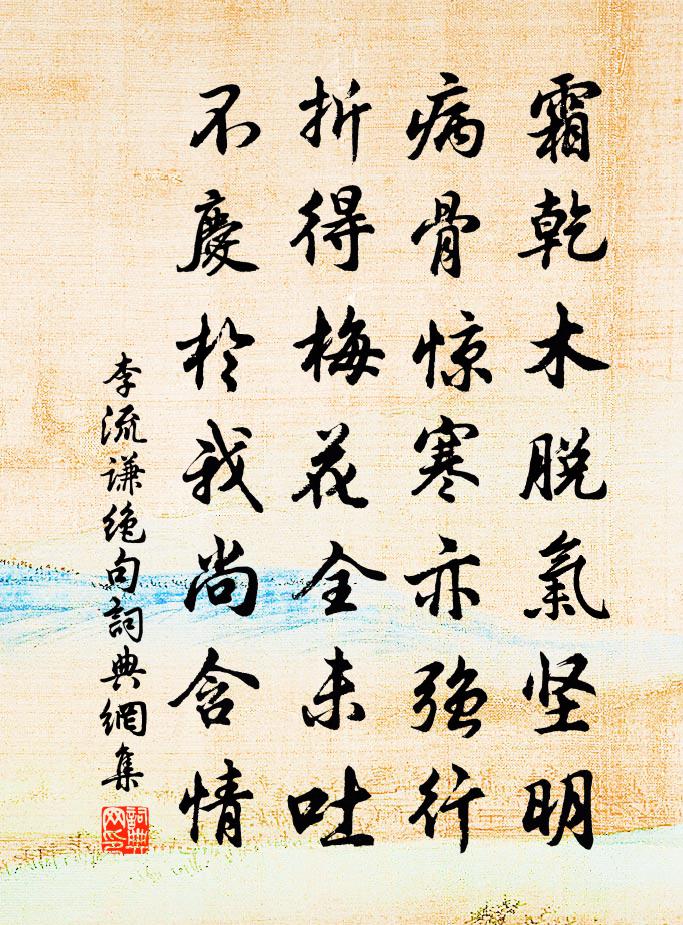 霜乾木脱氣坚明
病骨惊寒亦強行
折得梅花全未吐
不慶於我尚含情
李流谦绝句詞典網集
詞典
网印